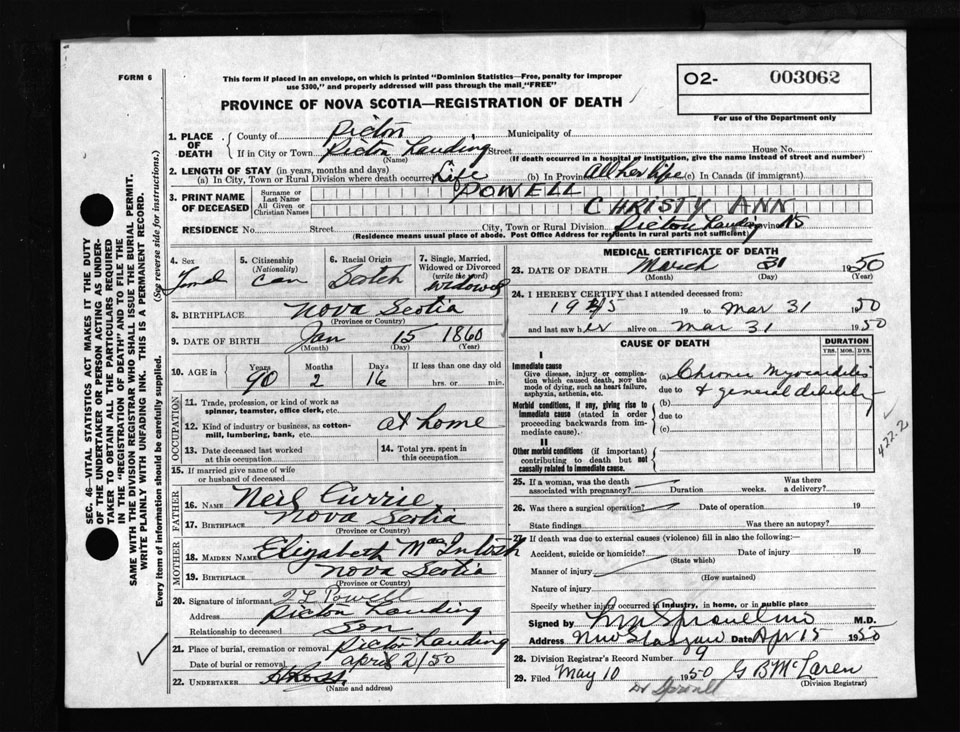 FORM 6
This form if placed in an envelope, on which is printed "Dominion Statistics—Free, penalty for improper
use $300," and properly addressed will pass through the mail "FREE"
PROVINCE OF NOVA SCOTIA—REGISTRATION OF DEATH
O2- 003062
For use of the Department only
1. PLACE OF DEATH
County of Pictou Municipality of
If in City or Town Pictou Landing Street House No.
(Name) (If death occurred in a hospital or institution, give the name instead of street and number)
2. LENGTH OF STAY (in years, months and days)
(a) In City, Town or Rural Division where death occurred Life (b) In Province All her life (c) In Canada (if immigrant)
3. PRINT NAME OF DECEASED
Surname or Last Name POWELL
All Given or Christian Names CHRISTY ANN
RESIDENCE No. Street City, Town or Rural Division Pictou Landing Province NS
(Residence means usual place of abode. Post Office Address for residents in rural parts not sufficient)
4. Sex Femal
5. Citizenship (Nationality) Can
6. Racial Origin Scotch
7. Single, Married, Widowed or Divorced (write the word) Widowed
8. BIRTHPLACE Nova Scotia
(Province or Country)
9. DATE OF BIRTH Jan 15 1860
(Month) (Day) (Year)
10. AGE in Years Months Days If less than one day old
90 2 16 hrs. or min.
OCCUPATION
11. Trade, profession, or kind of work as spinner, teamster, office clerk, etc.
12. Kind of industry or business, as cotton-mill, lumbering, bank, etc. at home
13. Date deceased last worked at this occupation
14. Total yrs. spent in this occupation
15. If married give name of wife or husband of deceased
FATHER
16. NAME Neil Currie
17. BIRTHPLACE Nova Scotia
(Province or Country)
MOTHER
18. MAIDEN NAME Elizabeth MacIntosh
19. BIRTHPLACE Nova Scotia
(Province or Country)
20. Signature of informant J L Powell
Address Pictou Landing
Relationship to deceased Son
21. Place of burial, cremation or removal Pictou Landing
Date of burial or removal April 2/50
22. UNDERTAKER Ross
(Name and address)
MEDICAL CERTIFICATE OF DEATH
23. DATE OF DEATH March 31 1950
(Month) (Day) (Year)
24. I HEREBY CERTIFY that I attended deceased from:
1945 19 to Mar 31 1950
and last saw her alive on Mar 31 1950
CAUSE OF DEATH
DURATION
YRS. MOS. DYS.
I
Immediate cause
Give disease, injury or complication which caused death, not the mode of dying, such as heart failure, asphyxia, asthenia, etc.
(a) Chronic Myocarditis
due to & general debility
Morbid conditions, if any, giving rise to immediate cause (stated in order proceeding backwards from immediate cause).
(b)
due to
(c)
II
Other morbid conditions (if important) contributing to death but not causally related to immediate cause.
422.2
25. If a woman, was the death associated with pregnancy? Duration weeks. Was there a delivery?
26. Was there a surgical operation? Date of operation 19
State findings Was there an autopsy?
27. If death was due to external causes (violence) fill in also the following:—
Accident, suicide or homicide? Date of injury 19
(State which)
Manner of injury
(How sustained)
Nature of injury
Specify whether injury occurred in industry, in home, or in public place
Signed by M.D.
Address New Glasgow Date Apr 15 1950
28. Division Registrar's Record Number 9
29. Filed May 10 1950 G B McLaren
(Division Registrar)
SEC. 46—VITAL STATISTICS ACT MAKES IT THE DUTY
OF THE UNDERTAKER OR PERSON ACTING AS UNDER-
TAKER TO OBTAIN ALL THE PARTICULARS REQUIRED
IN THE "REGISTRATION OF DEATH" AND TO FILE THE
SAME WITH THE DIVISION REGISTRAR WHO SHALL ISSUE THE BURIAL PERMIT.
WRITE PLAINLY WITH UNFADING INK. THIS IS A PERMANENT RECORD.
Every item of information should be carefully supplied. (See reverse side for instructions.)